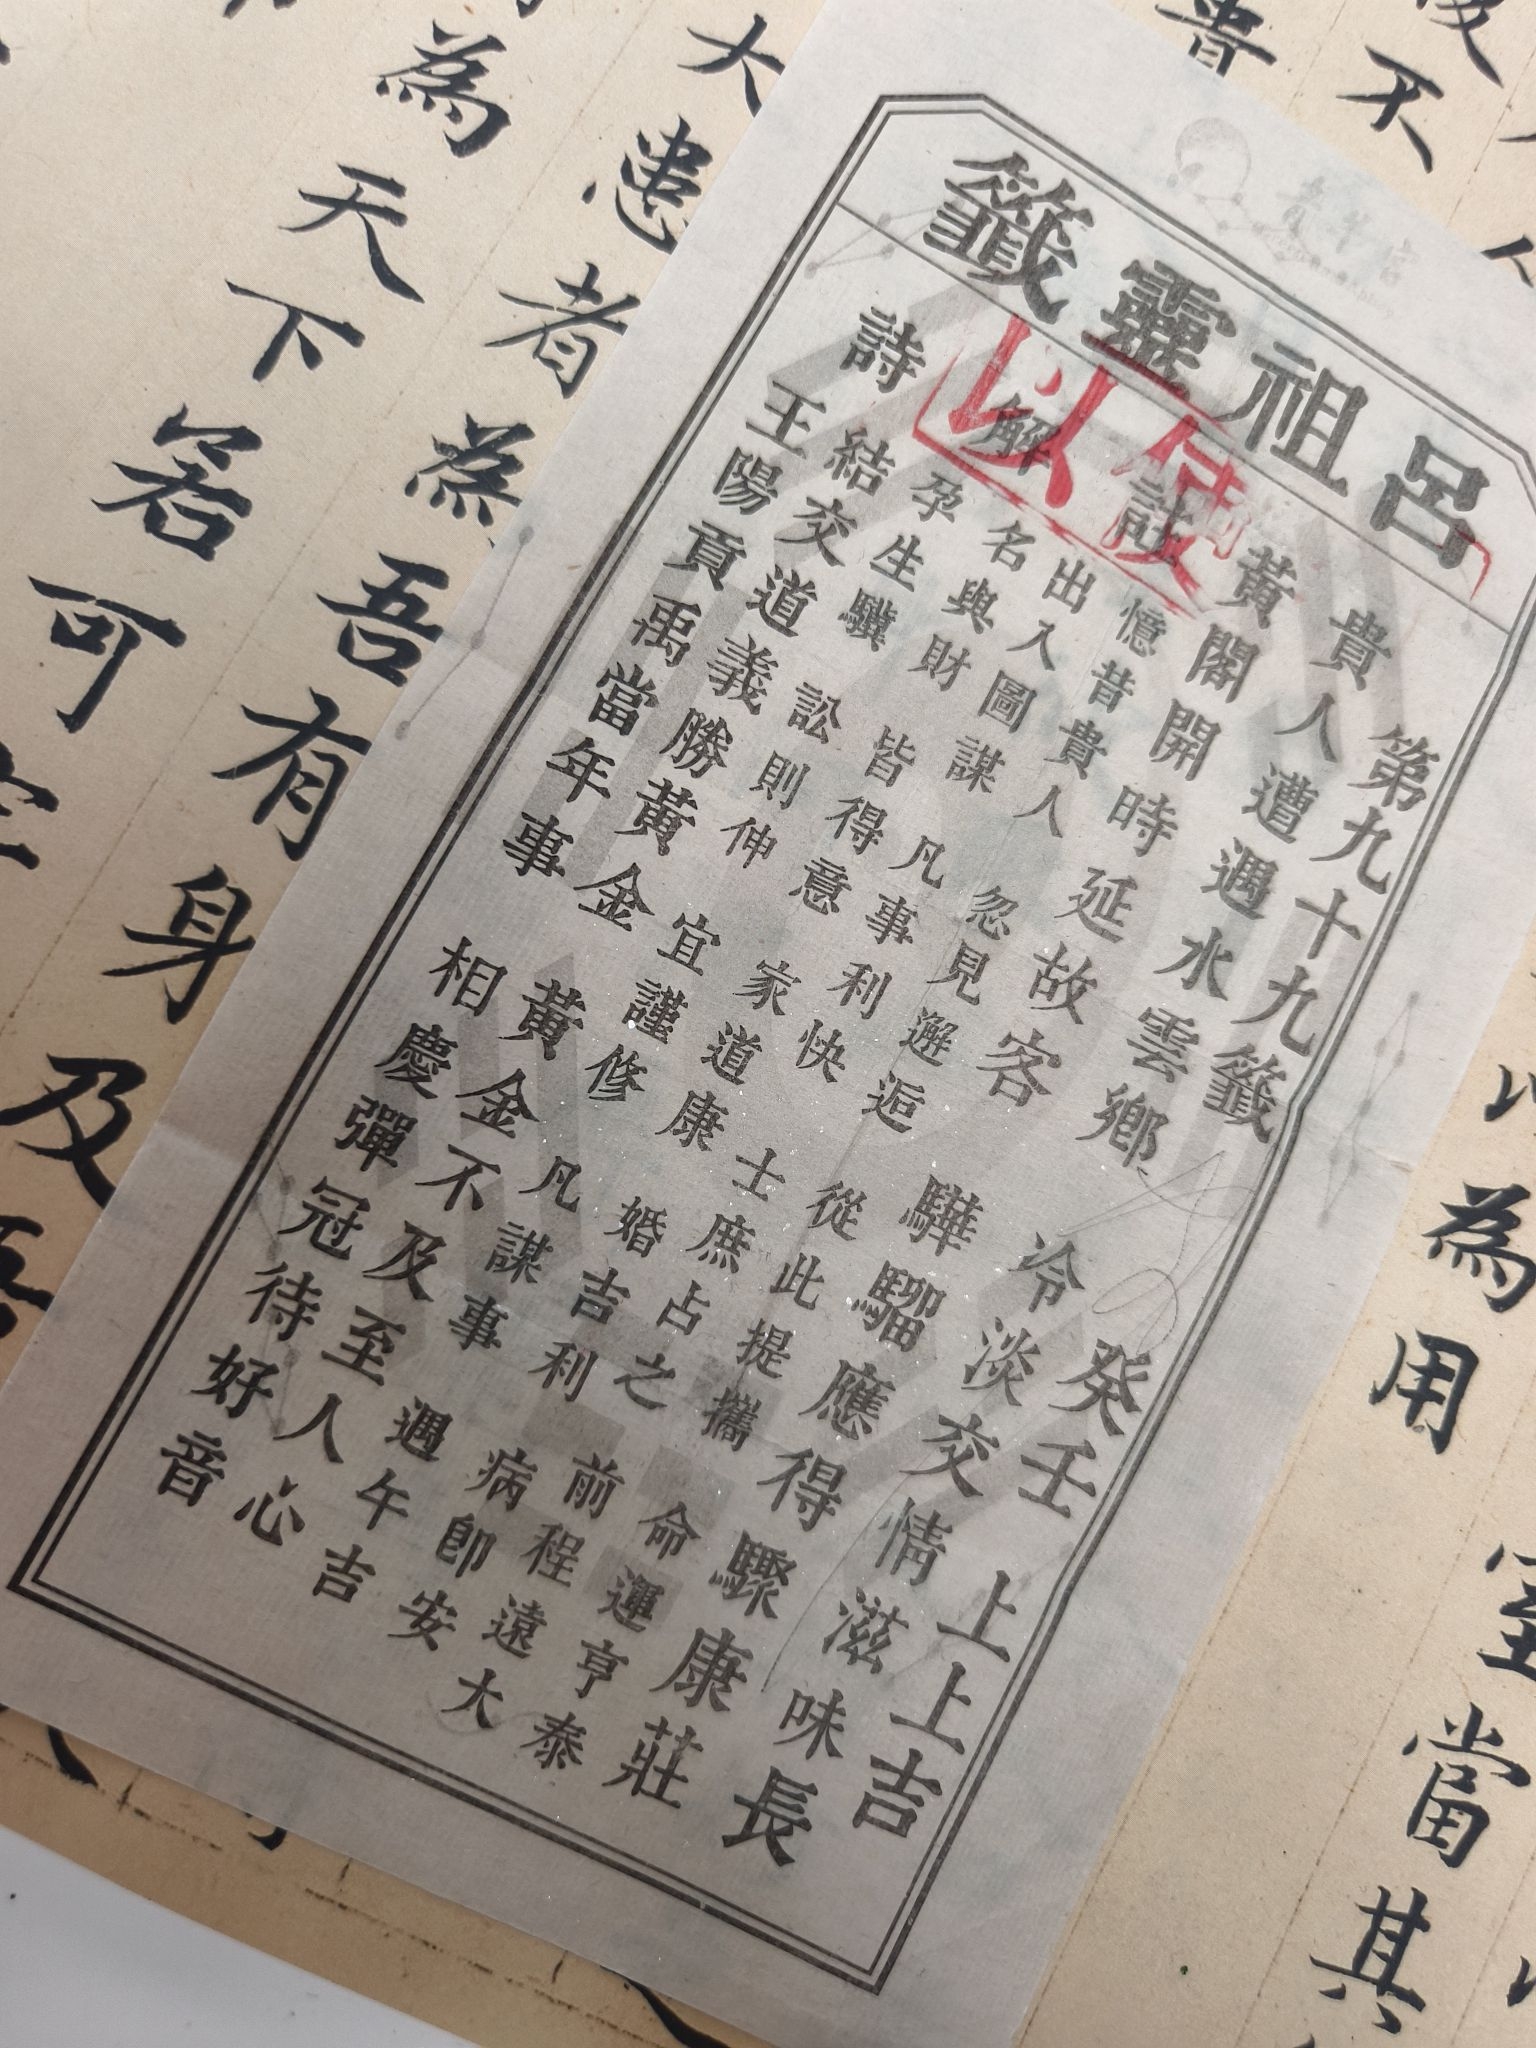 呂祖靈籤
第九十九籤 癸壬 上上吉
貴人遭遇水雲鄉 冷淡交情滋味長
黃閣開時延故客 驊騮應得驟康莊
註 憶昔貴人 忽見邂逅 從此提攜 命運亨泰
出入圖謀 凡事利快 士庶占之 前程遠大
解 名與財 皆得意 家道康 婚吉利 病即安
孕生驥 訟則伸 宜謹修 凡謀事 遇午吉
詩 結交道義勝黃金 黃金不及至人心
王陽貢禹當年事 相慶彈冠待好音
以為用
室當其
大患者為吾有身及吾
為天下若可